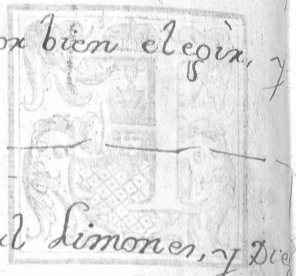 bien elegir, y
Limones, y Die